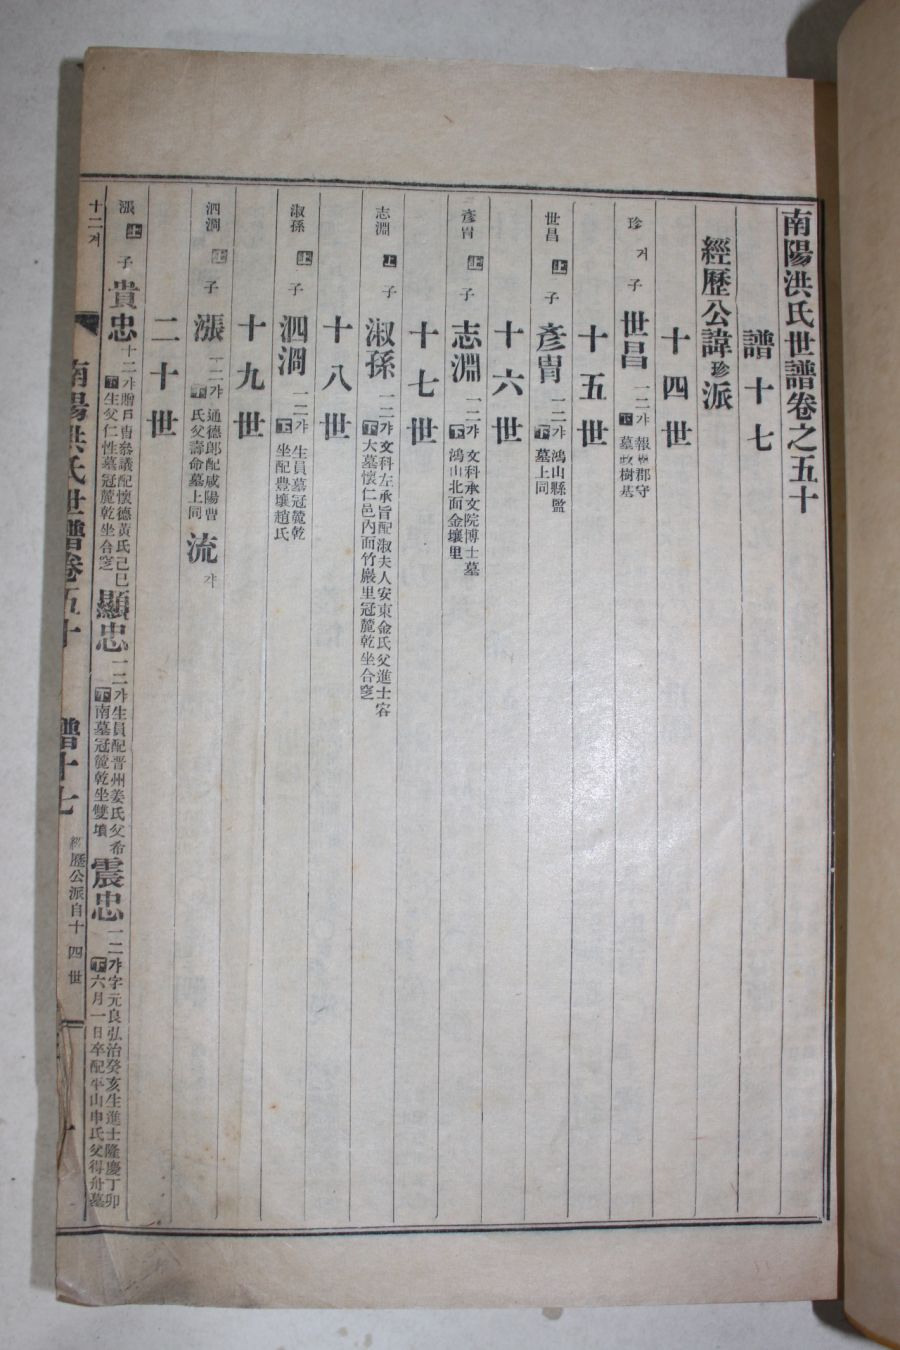 南陽洪氏世譜卷之五十
譜十七
經歷公諱珍派
十四世
珍 거 子 世昌 一二갸 報恩郡守
下 墓政樹基
十五世
世昌 上 子 彥胄 一二갸 鴻山縣監
下 墓上同
十六世
彥胄 上 子 志淵 一二갸 文科承文院博士墓
下 鴻山北面金壤里
十七世
志淵 上 子 淑孫 一二갸 文科左承旨配淑夫人安東金氏父進士容
下 大墓懷仁邑內面竹巖里冠麓乾坐合窆
十八世
淑孫 上 子 泗澗 一二갸 生員墓冠麓乾
下 坐配豊壤趙氏
十九世
泗澗 上 子 漲 一二갸 通德郎配咸陽曹
下 氏父壽命墓上同 流 갸
二十世
漲 上 子 貴忠 十二갸 贈戶曹參議配懷德黃氏己巳
下 生父仁性墓冠麓乾坐合窆 顯忠 一二갸 生員配晋州姜氏父希
下 南墓冠麓乾坐雙墳 震忠 一二갸 字元良弘治癸亥生進士隆慶丁卯
下 六月一日卒配平山申氏父得舟墓
十二겨
南陽洪氏世譜卷五十 譜十七 經歷公派自十四世